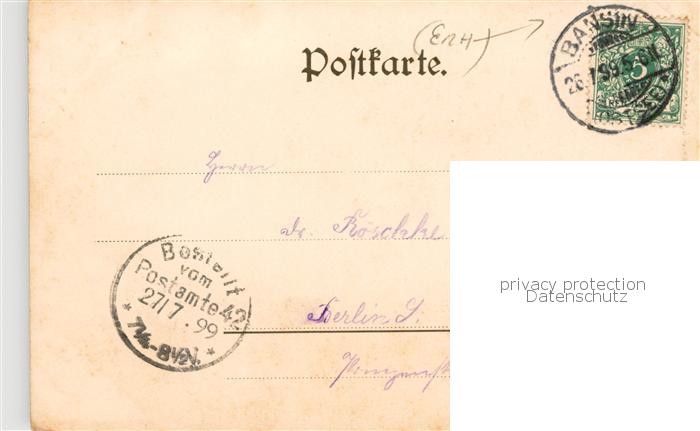 (Erh)
Postkarte.
BANSIN
5
OSTSEEBAD
Herrn
Dr. Röschke
Berlin S.
Bestellt
vom
Postamte 42
27/7 . 99
7¼-8½V.
privacy protection
Datenschutz